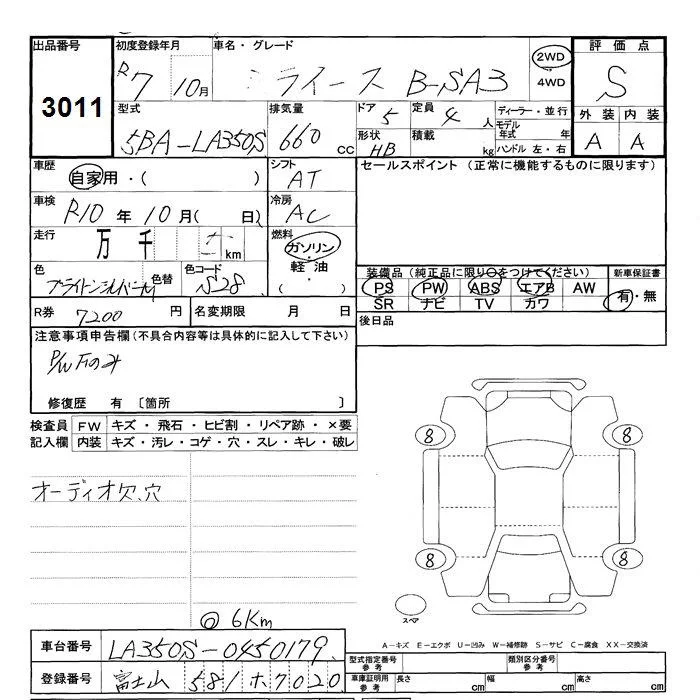 出品番号 初度登録年月 車名・グレード 評価点
3011 R7 10月 ミライース B-SA3 2WD 4WD S
型式 排気量 ドア 定員 ディーラー・並行 外装 内装
5BA-LA350S 660 cc 5 4人 モデル年式 年 A A
形状 HB 積載 kg ハンドル 左・右
車歴 自家用・( ) シフト AT セールスポイント (正常に機能するものに限ります)
車検 R10年 10月( 日) 冷房 AC
走行 万 千 km 燃料 ガソリン・軽油・( )
色 色替 色コード S28
装備品 (純正品に限り○をつけてください) 新車保証書
PS PW ABS エアB AW 有・無
SR ナビ TV カワ
R券 7200円 名変期限 月 日 後日品
注意事項申告欄(不具合内容等は具体的に記入して下さい)
P/W Fのみ
修復歴 有 〔箇所 〕
検査員 FW キズ・飛石・ヒビ割・リペア跡・×要
記入欄 内装 キズ・汚レ・コゲ・穴・スレ・キレ・破レ
オーディオ欠、穴
8 8
8 8
スペア
◎ 6Km
A－キズ E－エクボ U－凹み W－補修跡 S－サビ C－腐食 XX－交換済
車台番号 LA350S-0450179
型式指定番号 参考 類別区分番号 参考
登録番号 富士山 581ホ7020
車庫証明用 参考 長さ cm 幅 cm 高さ cm